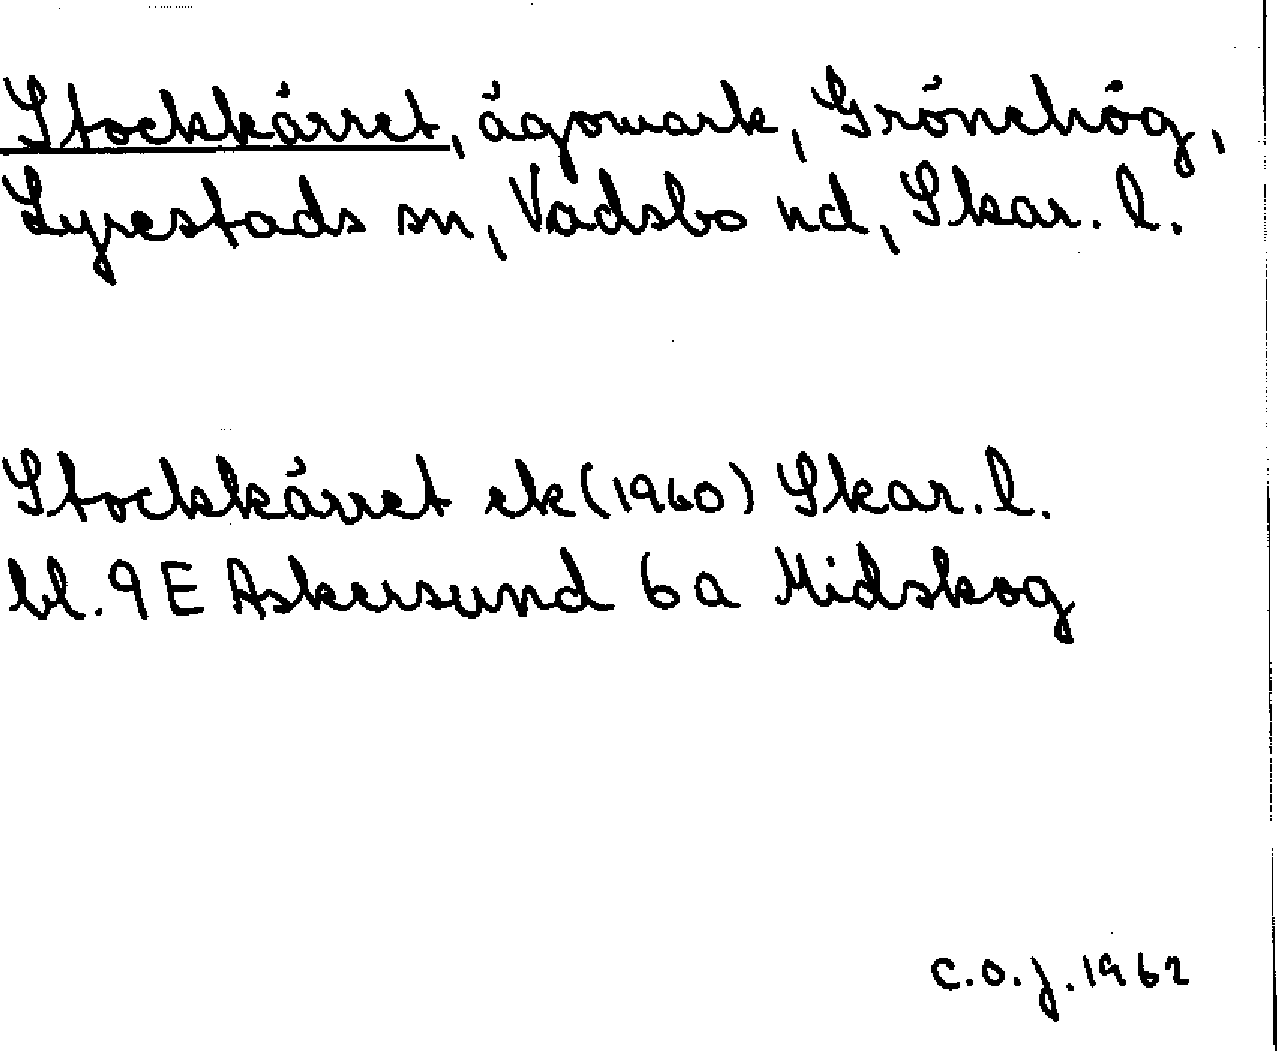 Stockkärret, ägomark, Grönehög,
Lyrestads sn, Vadsbo hd, Skar. l.
Stockkärret ek (1960) Skar. l.
bl. 9 E Askersund 6 a Midskog
C.O.J. 1962